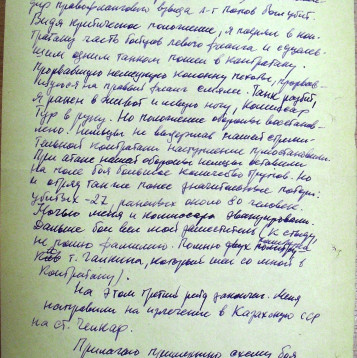 дир правофлангового взвода л-т Попов был убит.
Видя критическое положение, я погрузил в кон-
тратаку часть бойцов левого фланга и с уцелев-
шим одним танком пошел в контратаку.
Прорвавшуюся немецкую колонну пехоты, прорвав-
шуюся на правый фланг смяли. Танк разбит,
Я ранен в живот и левую ногу, комиссар
Тур в руку. Но положение обороны восстанов-
лено. Немцы не выдержав нашей стреми-
тельной контратаки наступление приостановили.
При атаке нашей обороны немцы оставили
на поле боя большое количество трупов. Но
и отряд также понес значительные потери:
убитых - 27, раненых около 80 человек.
Ночью меня и комиссара эвакуировали.
Дальше бой вел мой заместитель (к стыду
не помню фамилию. Помню двух
т. Галкина, который шел со мной в
контратаку).
На этом третий рейд закончил. Меня
направили на излечение в Казахскую ССР
на ст. Челкар.
Прилагаю примерную схему боя